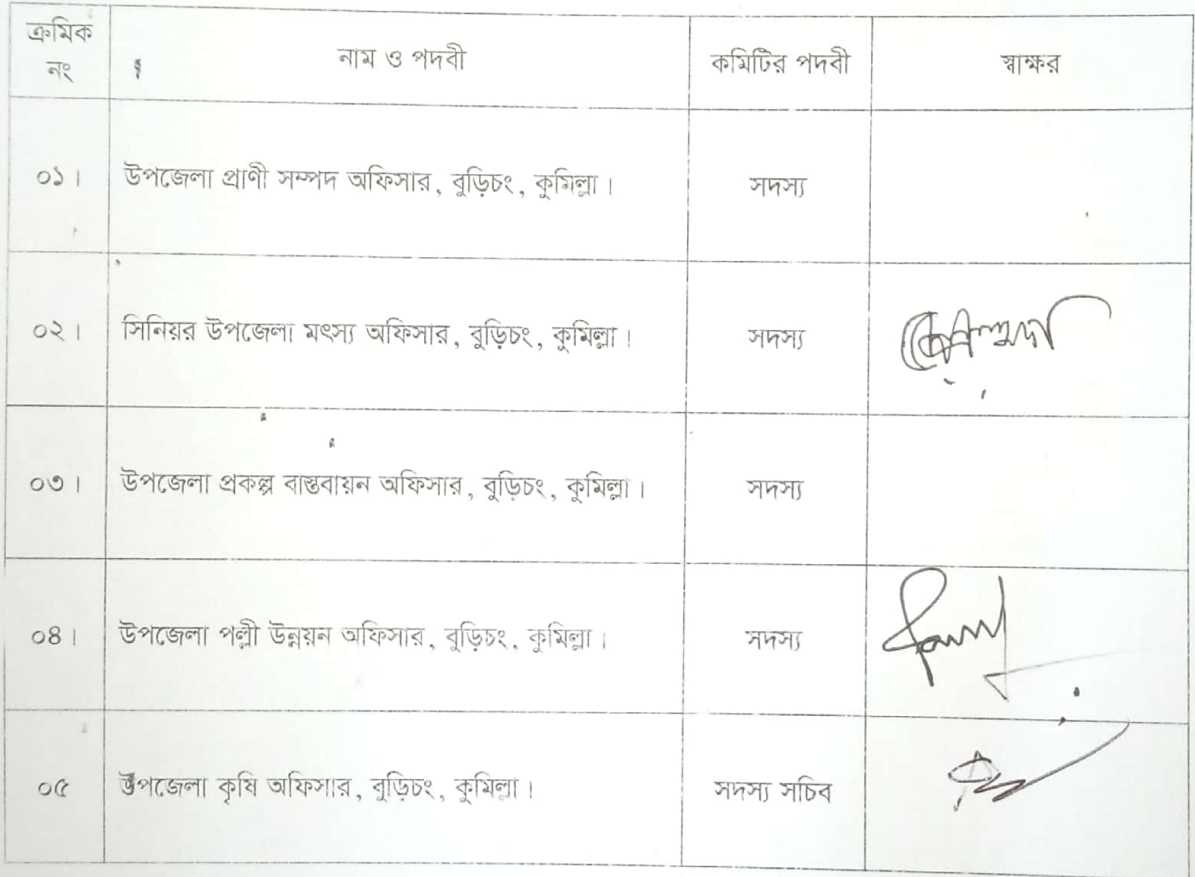 ক্রমিক নং নাম ও পদবী কমিটির পদবী স্বাক্ষর
০১। উপজেলা প্রাণী সম্পদ অফিসার, বুড়িচং, কুমিল্লা। সদস্য
০২। সিনিয়র উপজেলা মৎস্য অফিসার, বুড়িচং, কুমিল্লা। সদস্য
০৩। উপজেলা প্রকল্প বাস্তবায়ন অফিসার, বুড়িচং, কুমিল্লা। সদস্য
০৪। উপজেলা পল্লী উন্নয়ন অফিসার, বুড়িচং, কুমিল্লা। সদস্য
০৫ উপজেলা কৃষি অফিসার, বুড়িচং, কুমিল্লা। সদস্য সচিব